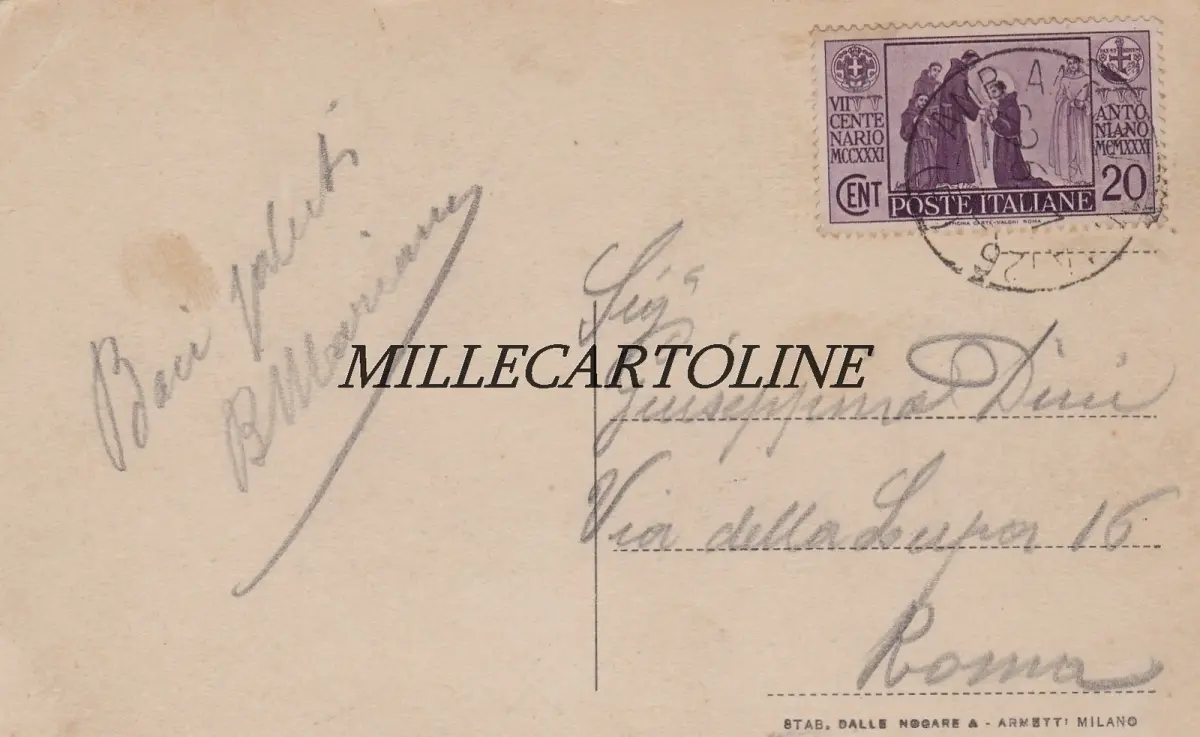 VII
CENTE
NARIO
MCCXXXI
CENT
ANTO
NIANO
MCMXXXI
20
POSTE ITALIANE
OFFICINA CARTE-VALORI ROMA
Baci
B Mariani
MILLECARTOLINE
Sig.ª
Giuseppina Dini
Via della Lupa 16
Roma
STAB. DALLE NOGARE & - ARMETTI MILANO